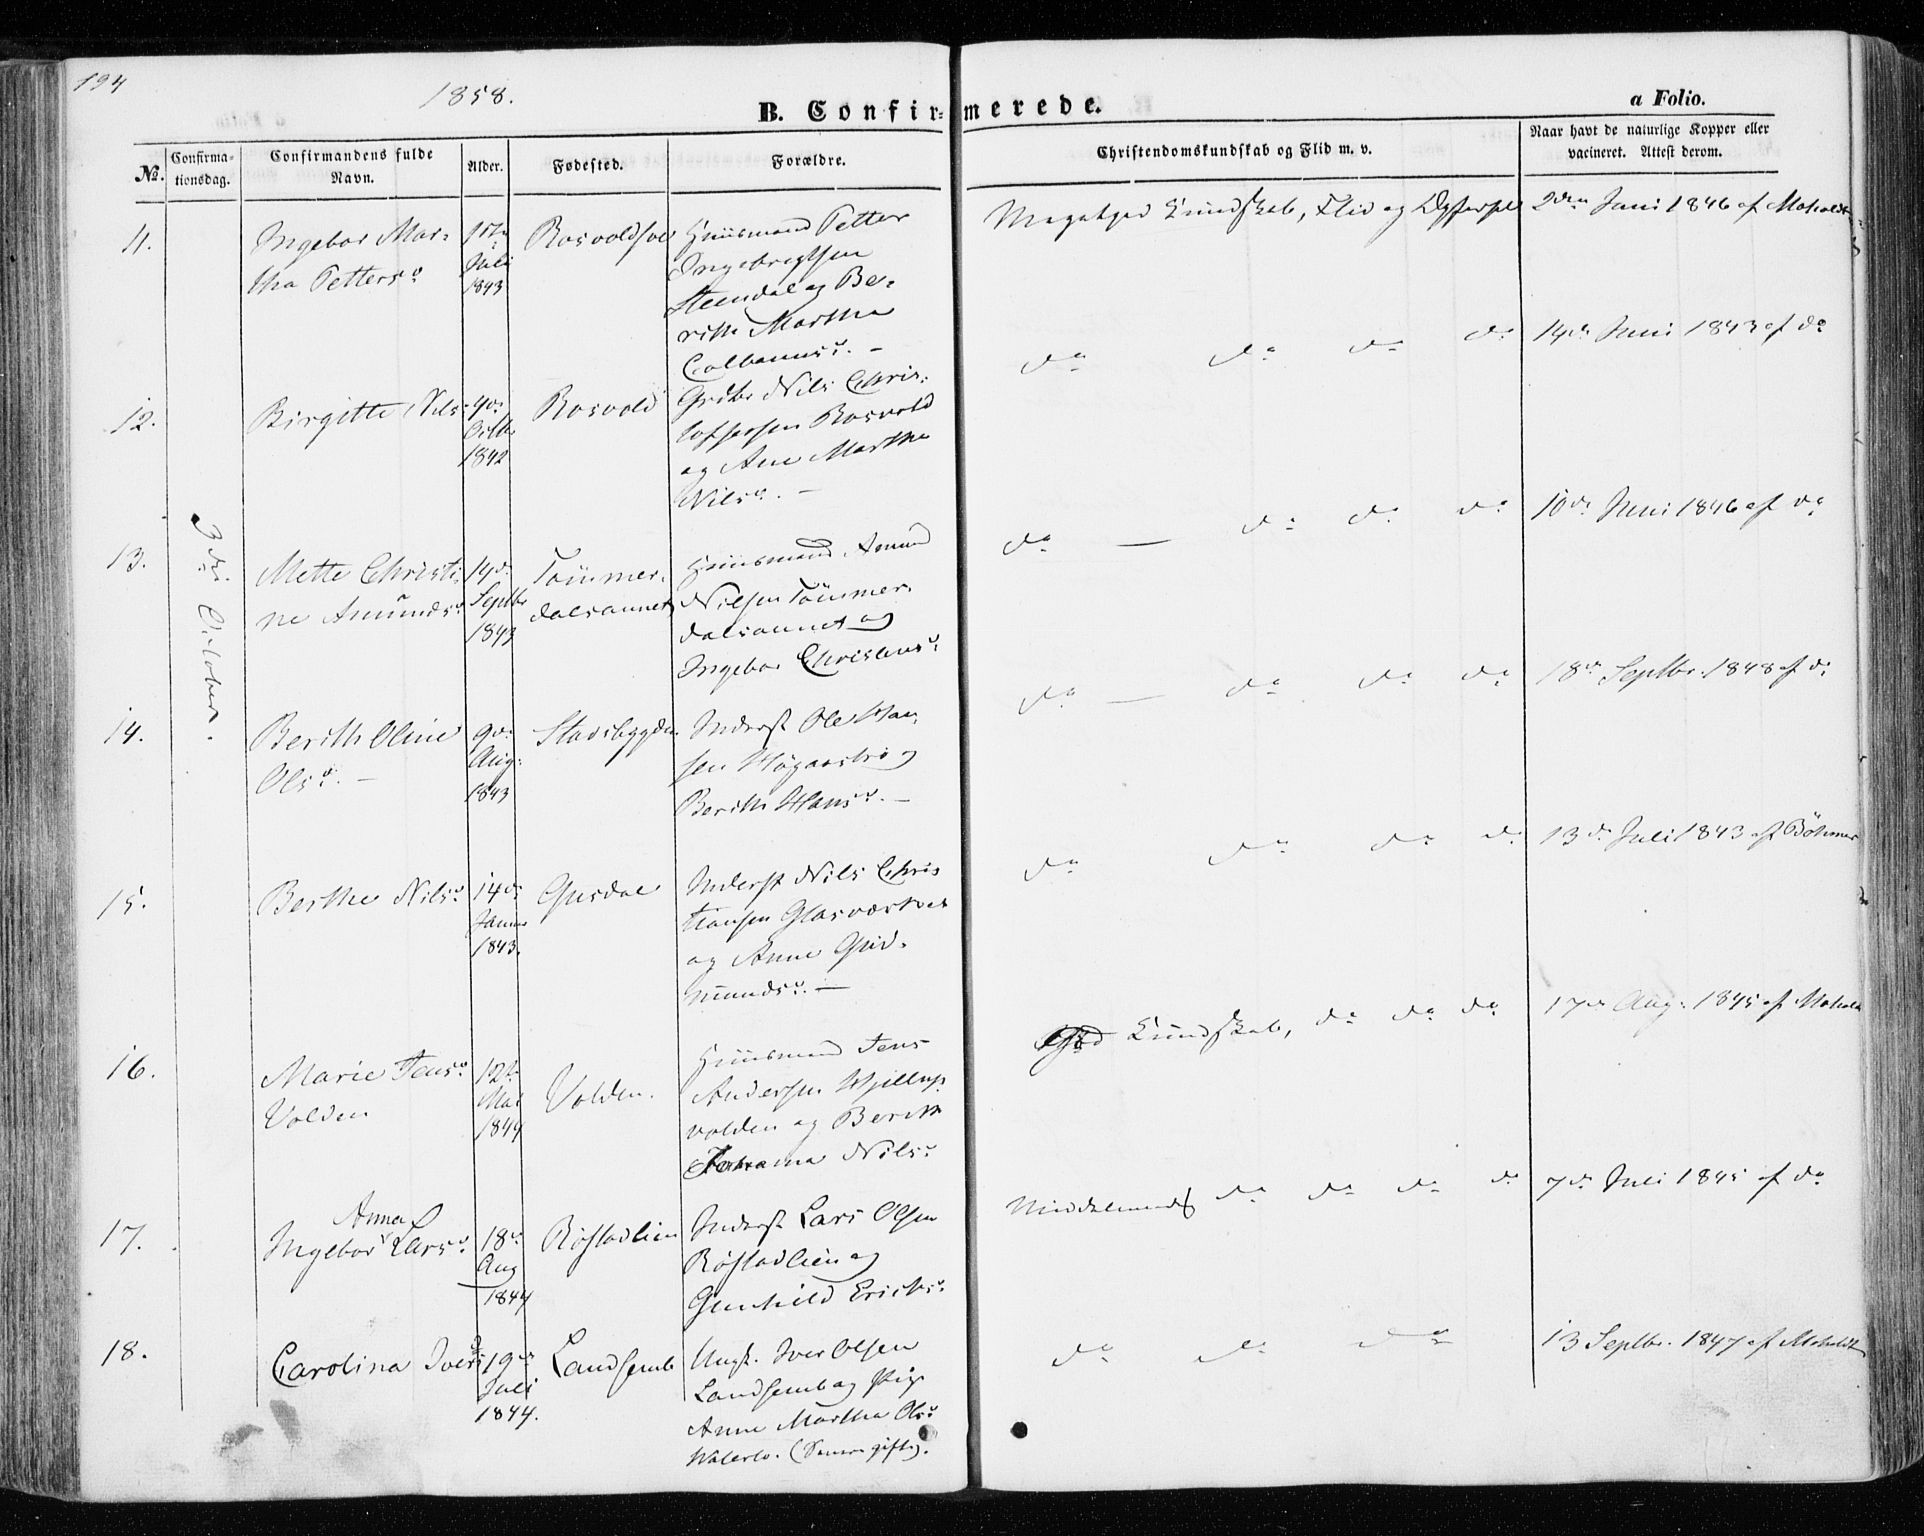 194
1858.
B. Confirmerede.
a Folio.
No.
Confirma-
tionsdag.
Confirmandens fulde
Navn.
Alder.
Fødested.
Forældre.
Christendomskundskab og Flid m. v.
Naar havt de naturlige Kopper eller
vacineret. Attest derom.
3die October.
11.
Ingebor Mar-
tha Petters
Juli
1843
Huusmand Petter
Ingebrigtsen
Steendal og Be-
rith Martha
Megetged Kundskab, Flid og
Juni 1846 af
12.
Birgitte Nils
4de
Octbr
1842
Rosvold
Nils Chris-
toffersen Rosvold
og Ane Martha
Nilsd. —
do do do do
14de Juni 1843 af do
13.
Mette Christi-
ne Amunds
14de
Septbr
1843
Tømmer-
dalsaunet
Huusmand Amund
Nilsen Tømmer-
dalsaunet og
Ingebor
do — do do do
10de Juni 1846 af do
14.
Berith Oline
Olsd. —
9de
Aug:
1843
Stadsbygden
Inderst Ole Han-
sen og
Berith Hansd. —
do — do do do
18de Septbr. 1848 af do
15.
Berthe Nilsd
14de
Januar
1843.
Inderst Nils Chris
tiansen
og Anne Gud-
mundsd. —
do do do do
13de Juli 1843 af Böhmer
16.
Marie Jensd
Volden
12te
Mai
1844
Volden.
Huusmand Jens
Andersen
volden og Berith
Johanna Nilsd
Kundskab, do do do
17de Aug: 1845 af
17.
Anna
Ingebor Larsd.
18de
Aug
1844
Røstadlien
Inderst Lars Olsen
Røstadlien og
Gunhild Ericks
do do do do
7de Juli 1845 af do
18.
Carolina Iversd
19de
Juli
1844.
Landsemb
Ungk. Iver Olsen
Landsemb og Pige
Anne Martha Olsd
do do do
13 Septbr. 1847 af